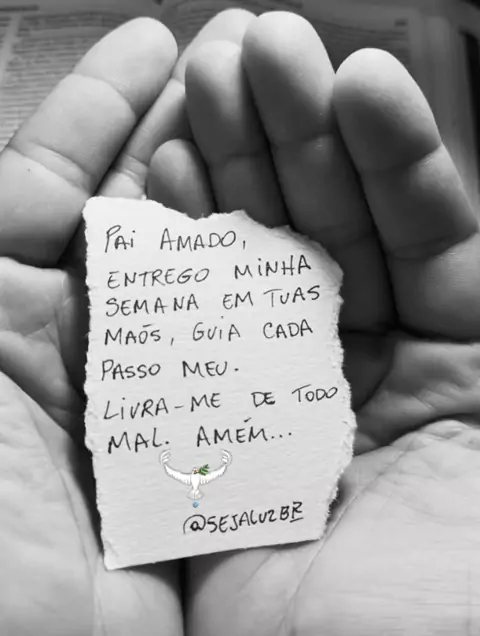 PAI AMADO,
ENTREGO MINHA
SEMANA EM TUAS
MAÕS, GUIA CADA
PASSO MEU.
LIVRA-ME DE TODO
MAL. AMÉM...
@SEJALUZBR